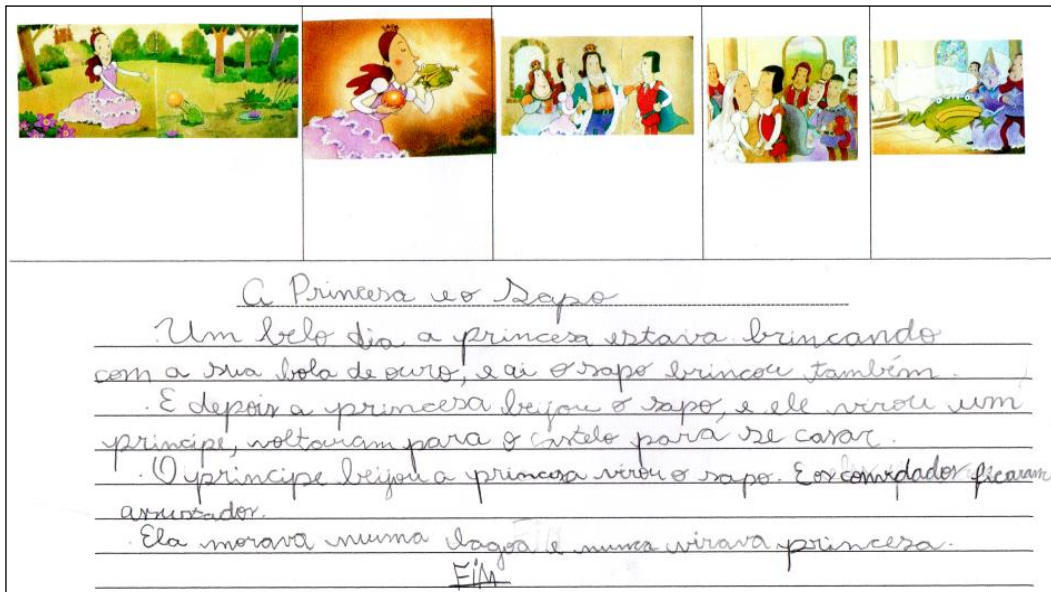 A Princesa e o Sapo
Um belo dia a princesa estava brincando
com a sua bola de ouro, e ai o sapo brincou também.
E depois a princesa beijou o sapo, e ele virou um
principe, voltaram para o castelo para se casar.
O principe beijou a princesa virou o sapo. E os convidados ficaram
assustados.
Ela morava numa lagoa e nunca virava princesa.
FIM